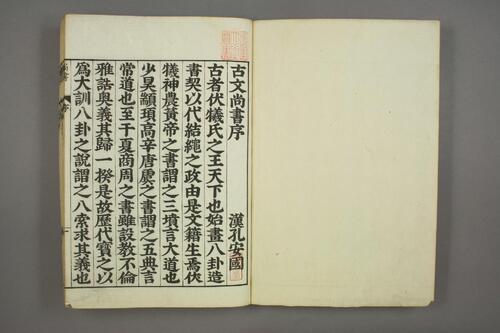 古文尚書序
漢孔安國
古者伏犧氏之王天下也始畫八卦造
書契以代結繩之政由是文籍生焉伏
犧神農黃帝之書謂之三墳言大道也
少昊顓頊高辛唐虞之書謂之五典言
常道也至于夏商周之書雖設教不倫
雅誥奧義其歸一揆是故歷代寶之以
爲大訓八卦之說謂之八索求其義也